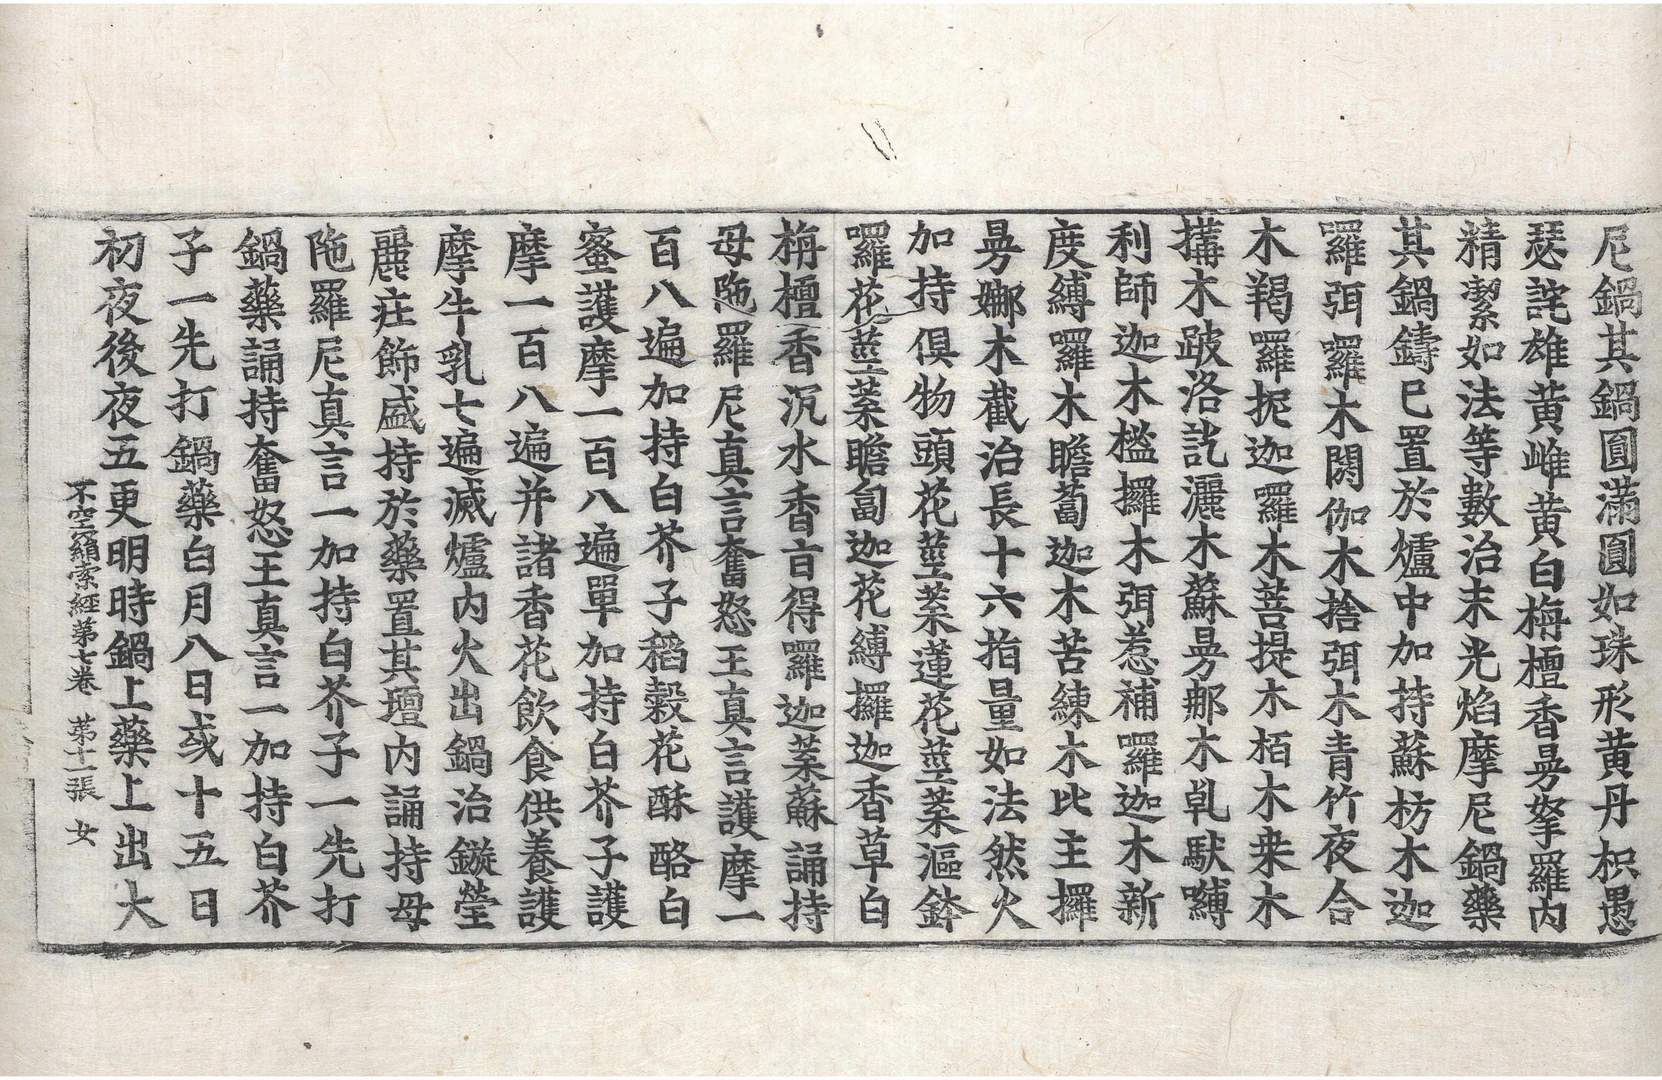 尼鍋其鍋圓滿圓如珠形黃丹枳愚
瑟詫雄黃雌黃白栴檀香曼拏羅內
精潔如法等數治末光焰摩尼鍋藥
其鍋鑄已置於爐中加持蘇枋木迦
囉弭囉木閼伽木捨弭木青竹夜合
木羯囉抳迦囉木菩提木栢木桒木
搆木跛洛訖灑木蘇曼那木乹馱嚩
利師迦木檻攞木弭惹補囉迦木新
度縛囉木瞻蔔迦木苦練木比主攞
曼娜木截治長十六指量如法然火
加持俱物頭花莖葉蓮花莖葉漚鉢
囉花莖葉瞻匐迦花縛攞迦香草白
栴檀香沉水香苜得羅迦葉蘇誦持
母陁羅尼真言奮怒王真言護摩一
百八遍加持白芥子稻穀花酥酪白
蜜護摩一百八遍單加持白芥子護
摩一百八遍并諸香花飲食供養護
摩牛乳七遍滅爐內火出鍋治鏇瑩
麗莊飾盛持於藥置其壇內誦持母
陁羅尼真言一加持白芥子一先打
鍋藥誦持奮怒王真言一加持白芥
子一先打鍋藥白月八日或十五日
初夜後夜五更明時鍋上藥上出大
不空羂索經第七卷 第十一張 女